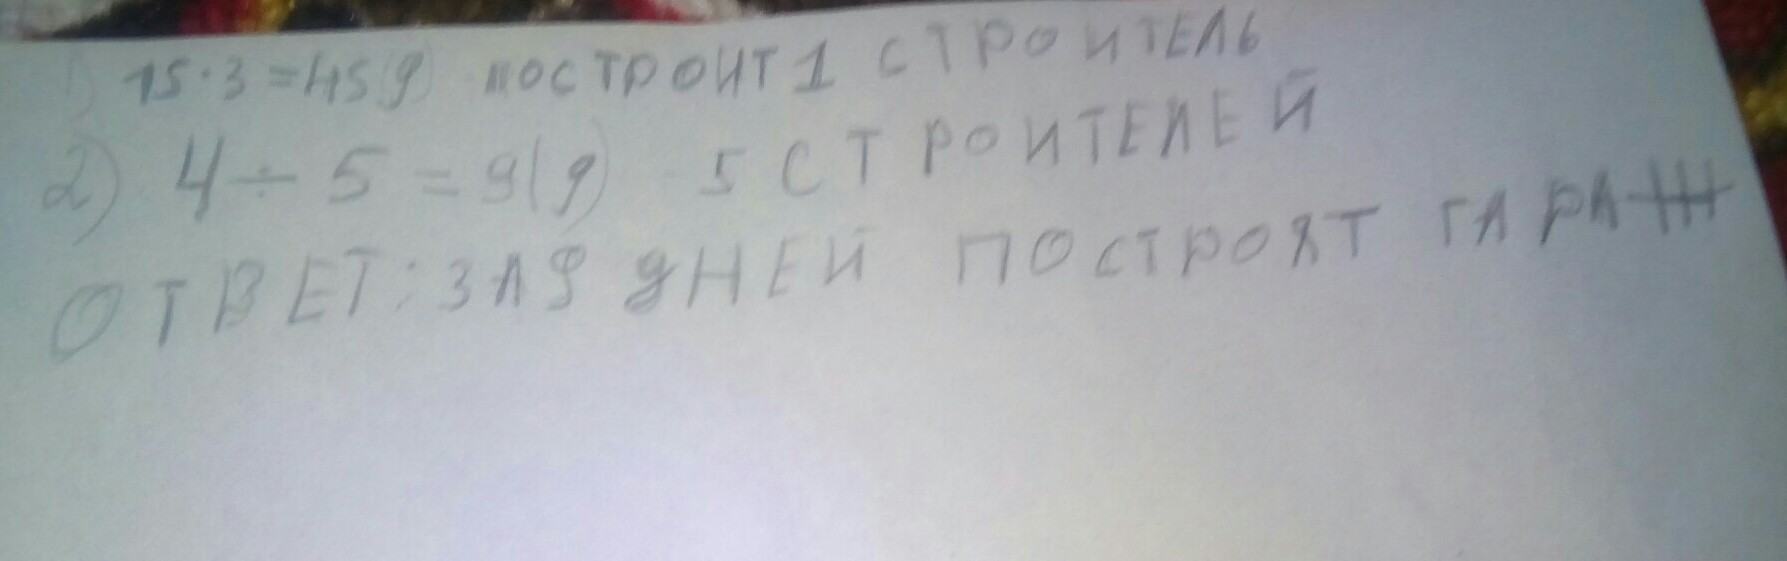 1) 15·3=45(д) построит 1 строитель
2) 4÷5=9(д) 5 строителей
Ответ: за 9 дней построят гараж